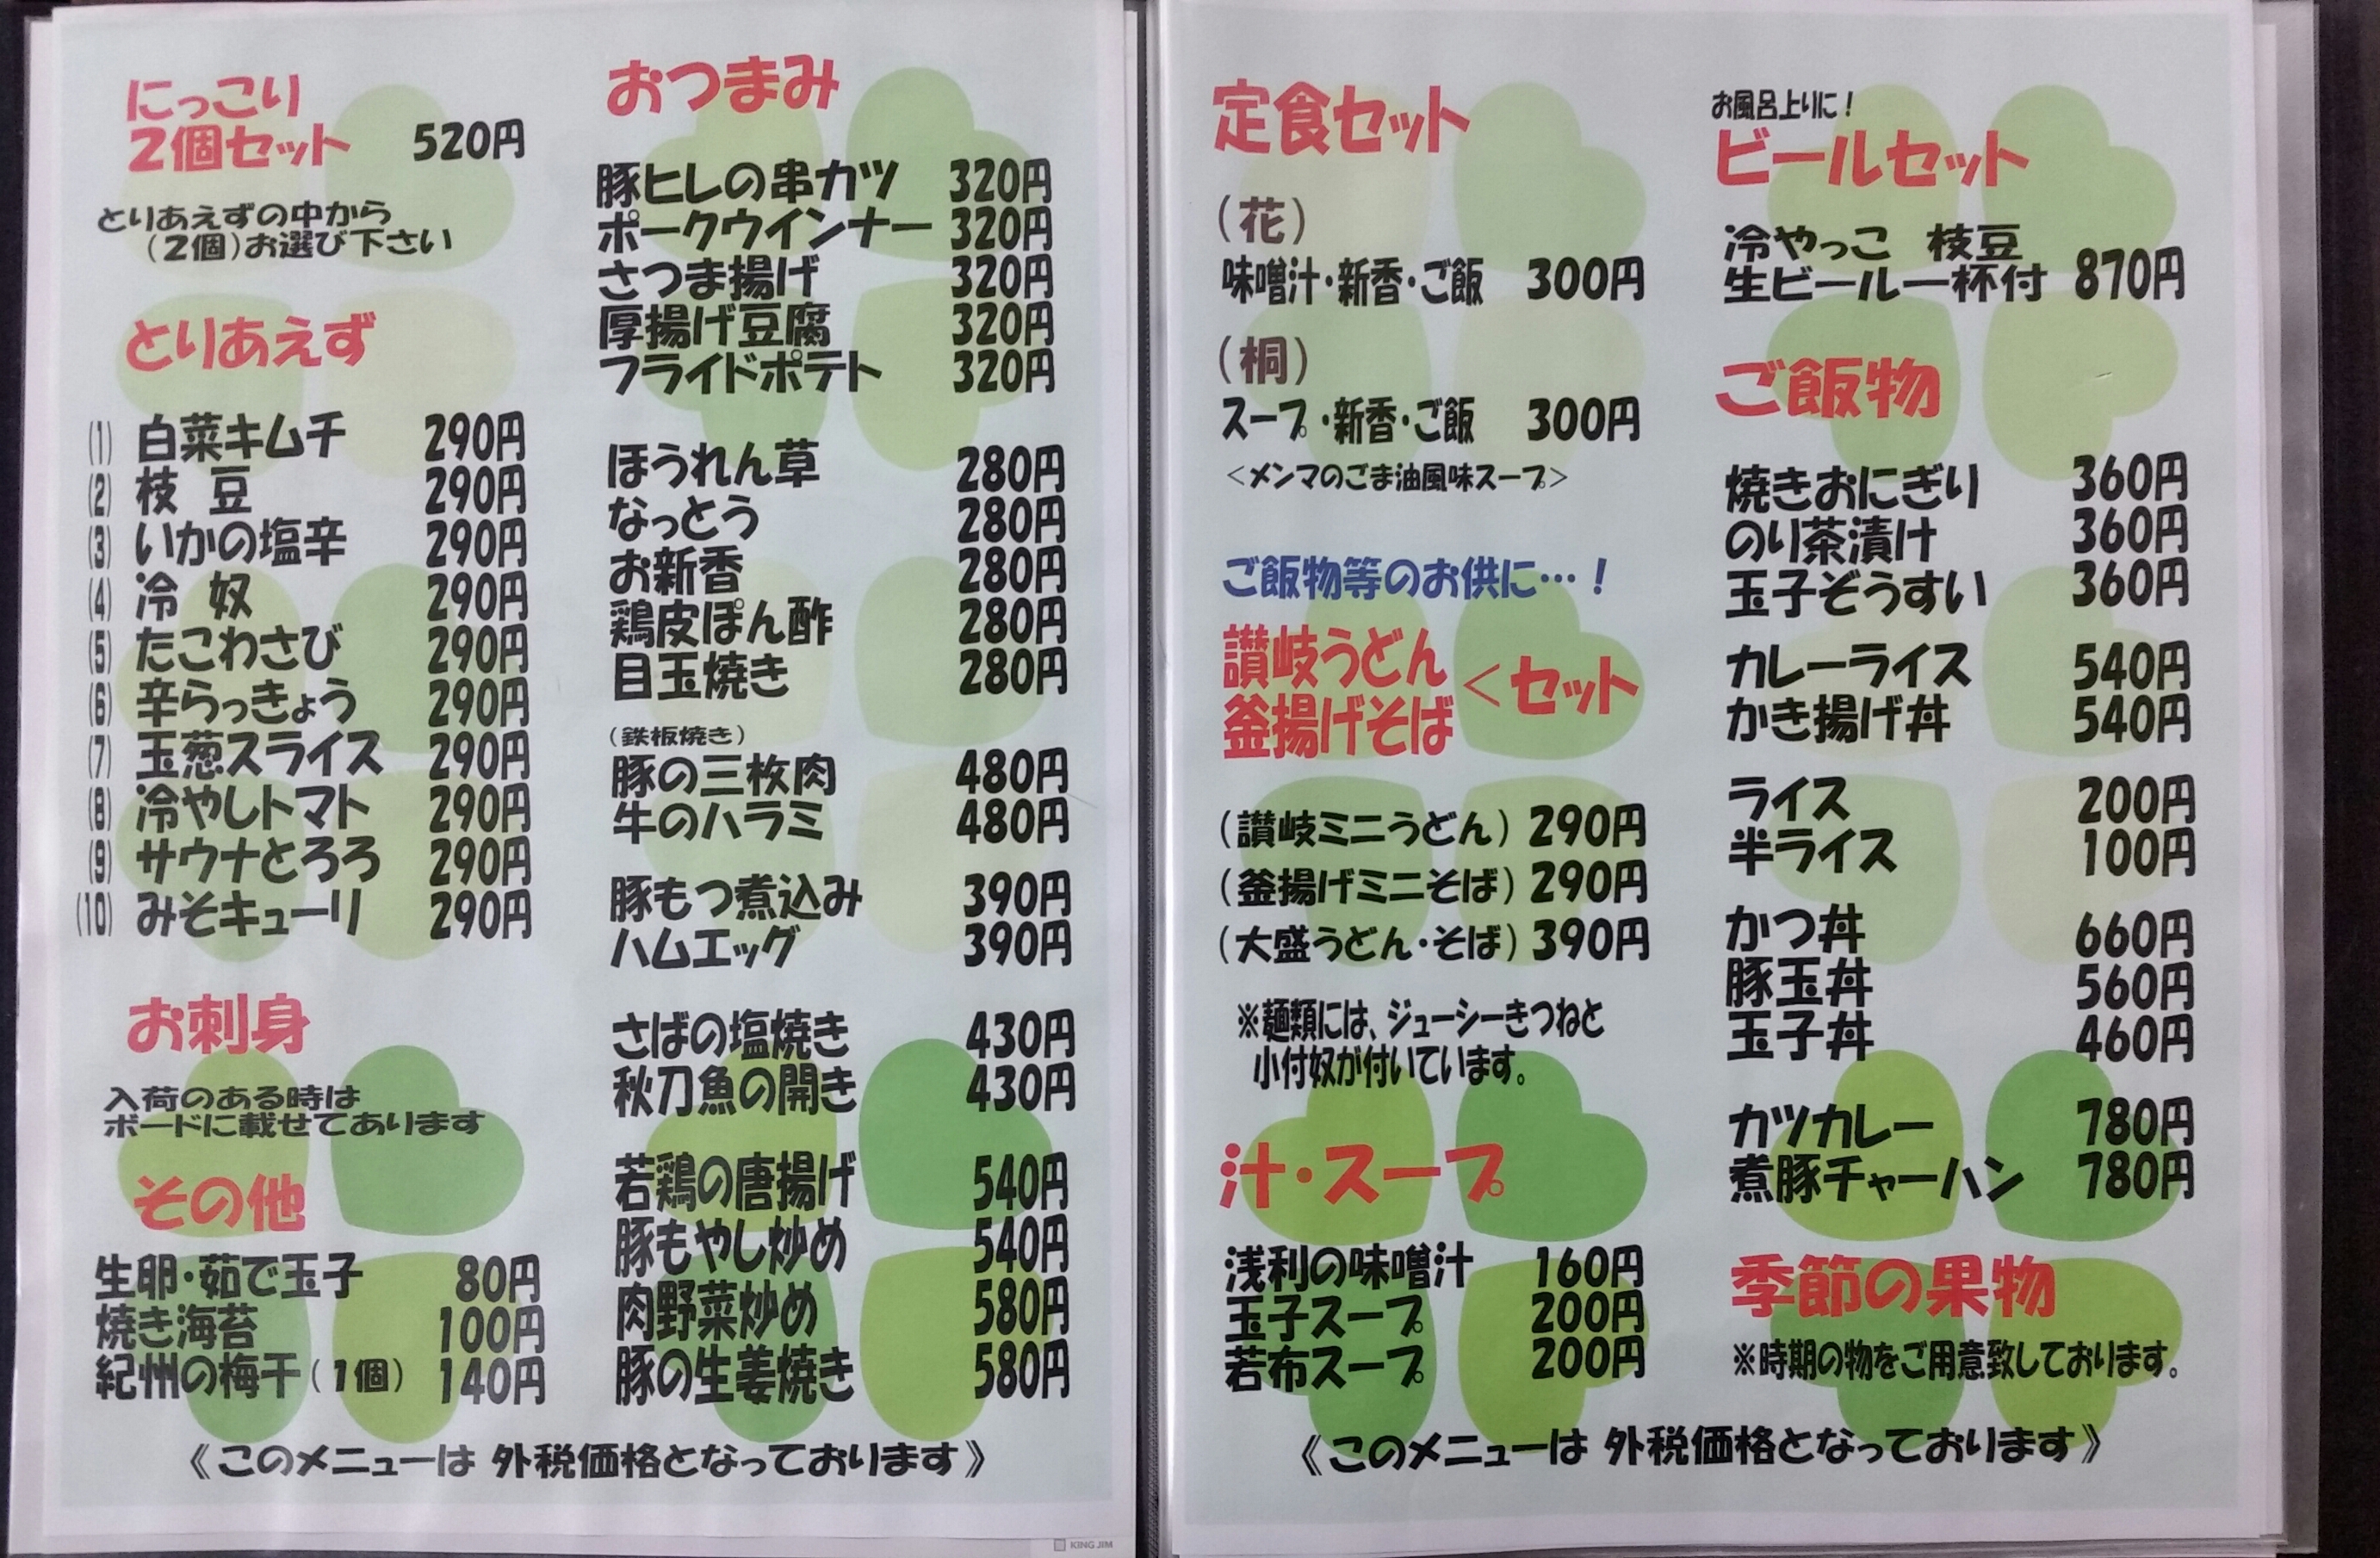 にっこり
2個セット 520円
とりあえずの中から
(2個)お選び下さい
とりあえず
(1) 白菜キムチ 290円
(2) 枝 豆 290円
(3) いかの塩辛 290円
(4) 冷 奴 290円
(5) たこわさび 290円
(6) 辛らっきょう 290円
(7) 玉葱スライス 290円
(8) 冷やしトマト 290円
(9) サウナとろろ 290円
(10) みそキューリ 290円
お刺身
入荷のある時は
ボードに載せてあります
その他
生卵・茹で玉子 80円
焼き海苔 100円
紀州の梅干(1個) 140円
おつまみ
豚ヒレの串カツ 320円
ポークウインナー 320円
さつま揚げ 320円
厚揚げ豆腐 320円
フライドポテト 320円
ほうれん草 280円
なっとう 280円
お新香 280円
鶏皮ぽん酢 280円
目玉焼き 280円
(鉄板焼き)
豚の三枚肉 480円
牛のハラミ 480円
豚もつ煮込み 390円
ハムエッグ 390円
さばの塩焼き 430円
秋刀魚の開き 430円
若鶏の唐揚げ 540円
豚もやし炒め 540円
肉野菜炒め 580円
豚の生姜焼き 580円
《このメニューは 外税価格となっております》
KING JIM
定食セット
(花)
味噌汁・新香・ご飯 300円
(桐)
スープ・新香・ご飯 300円
<メンマのごま油風味スープ>
ご飯物等のお供に…!
讃岐うどん
釜揚げそば <セット
(讃岐ミニうどん) 290円
(釜揚げミニそば) 290円
(大盛うどん・そば) 390円
※麺類には、ジューシーきつねと
小付奴が付いています。
汁・スープ
浅利の味噌汁 160円
玉子スープ 200円
若布スープ 200円
お風呂上りに!
ビールセット
冷やっこ 枝豆
生ビール一杯付 870円
ご飯物
焼きおにぎり 360円
のり茶漬け 360円
玉子ぞうすい 360円
カレーライス 540円
かき揚げ丼 540円
ライス 200円
半ライス 100円
かつ丼 660円
豚玉丼 560円
玉子丼 460円
カツカレー 780円
煮豚チャーハン 780円
季節の果物
※時期の物をご用意致しております。
《このメニューは 外税価格となっております》